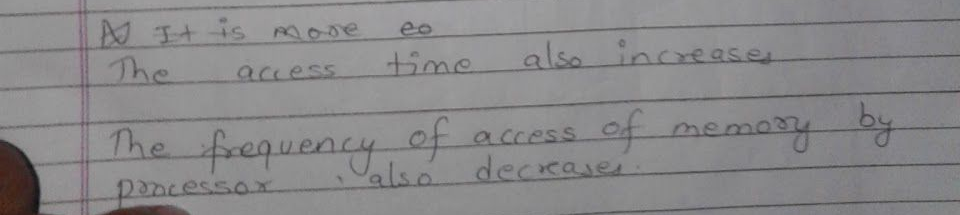 It is more eo
The access time also increases
The frequency of access of memory by
porcessor also decreases.